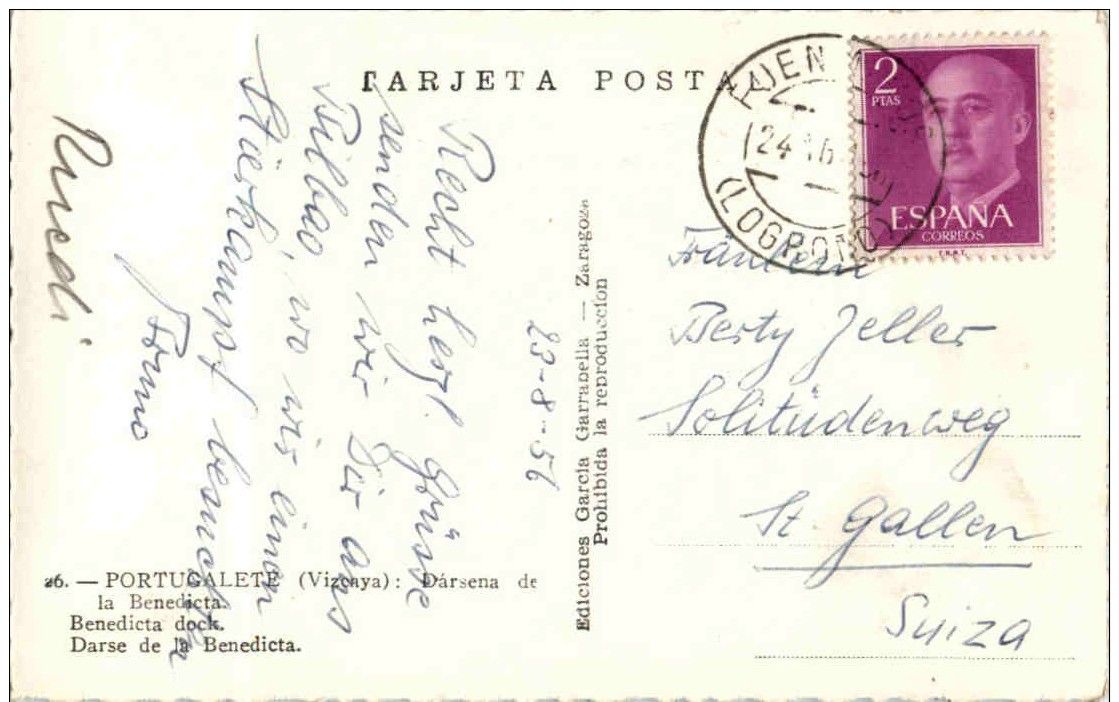 TARJETA POSTAL
23-8-56
Recht herzl. Grüsse
senden wir Dir aus
Bilbao, wo wir einen
Stierkampf besuchten
Bruno
Ruedi
26. — PORTUGALETE (Vizcaya): Dársena de
la Benedicta.
Benedicta dock.
Darse de la Benedicta.
Ediciones García Garrabella — Zaragoza
Prohibida la reproduccion
2
PTAS
ESPAÑA
CORREOS
F.N.M.T.
(LOGROÑO)
Fräulein
Berty Zeller
Solitüdenweg
St. Gallen
Suiza